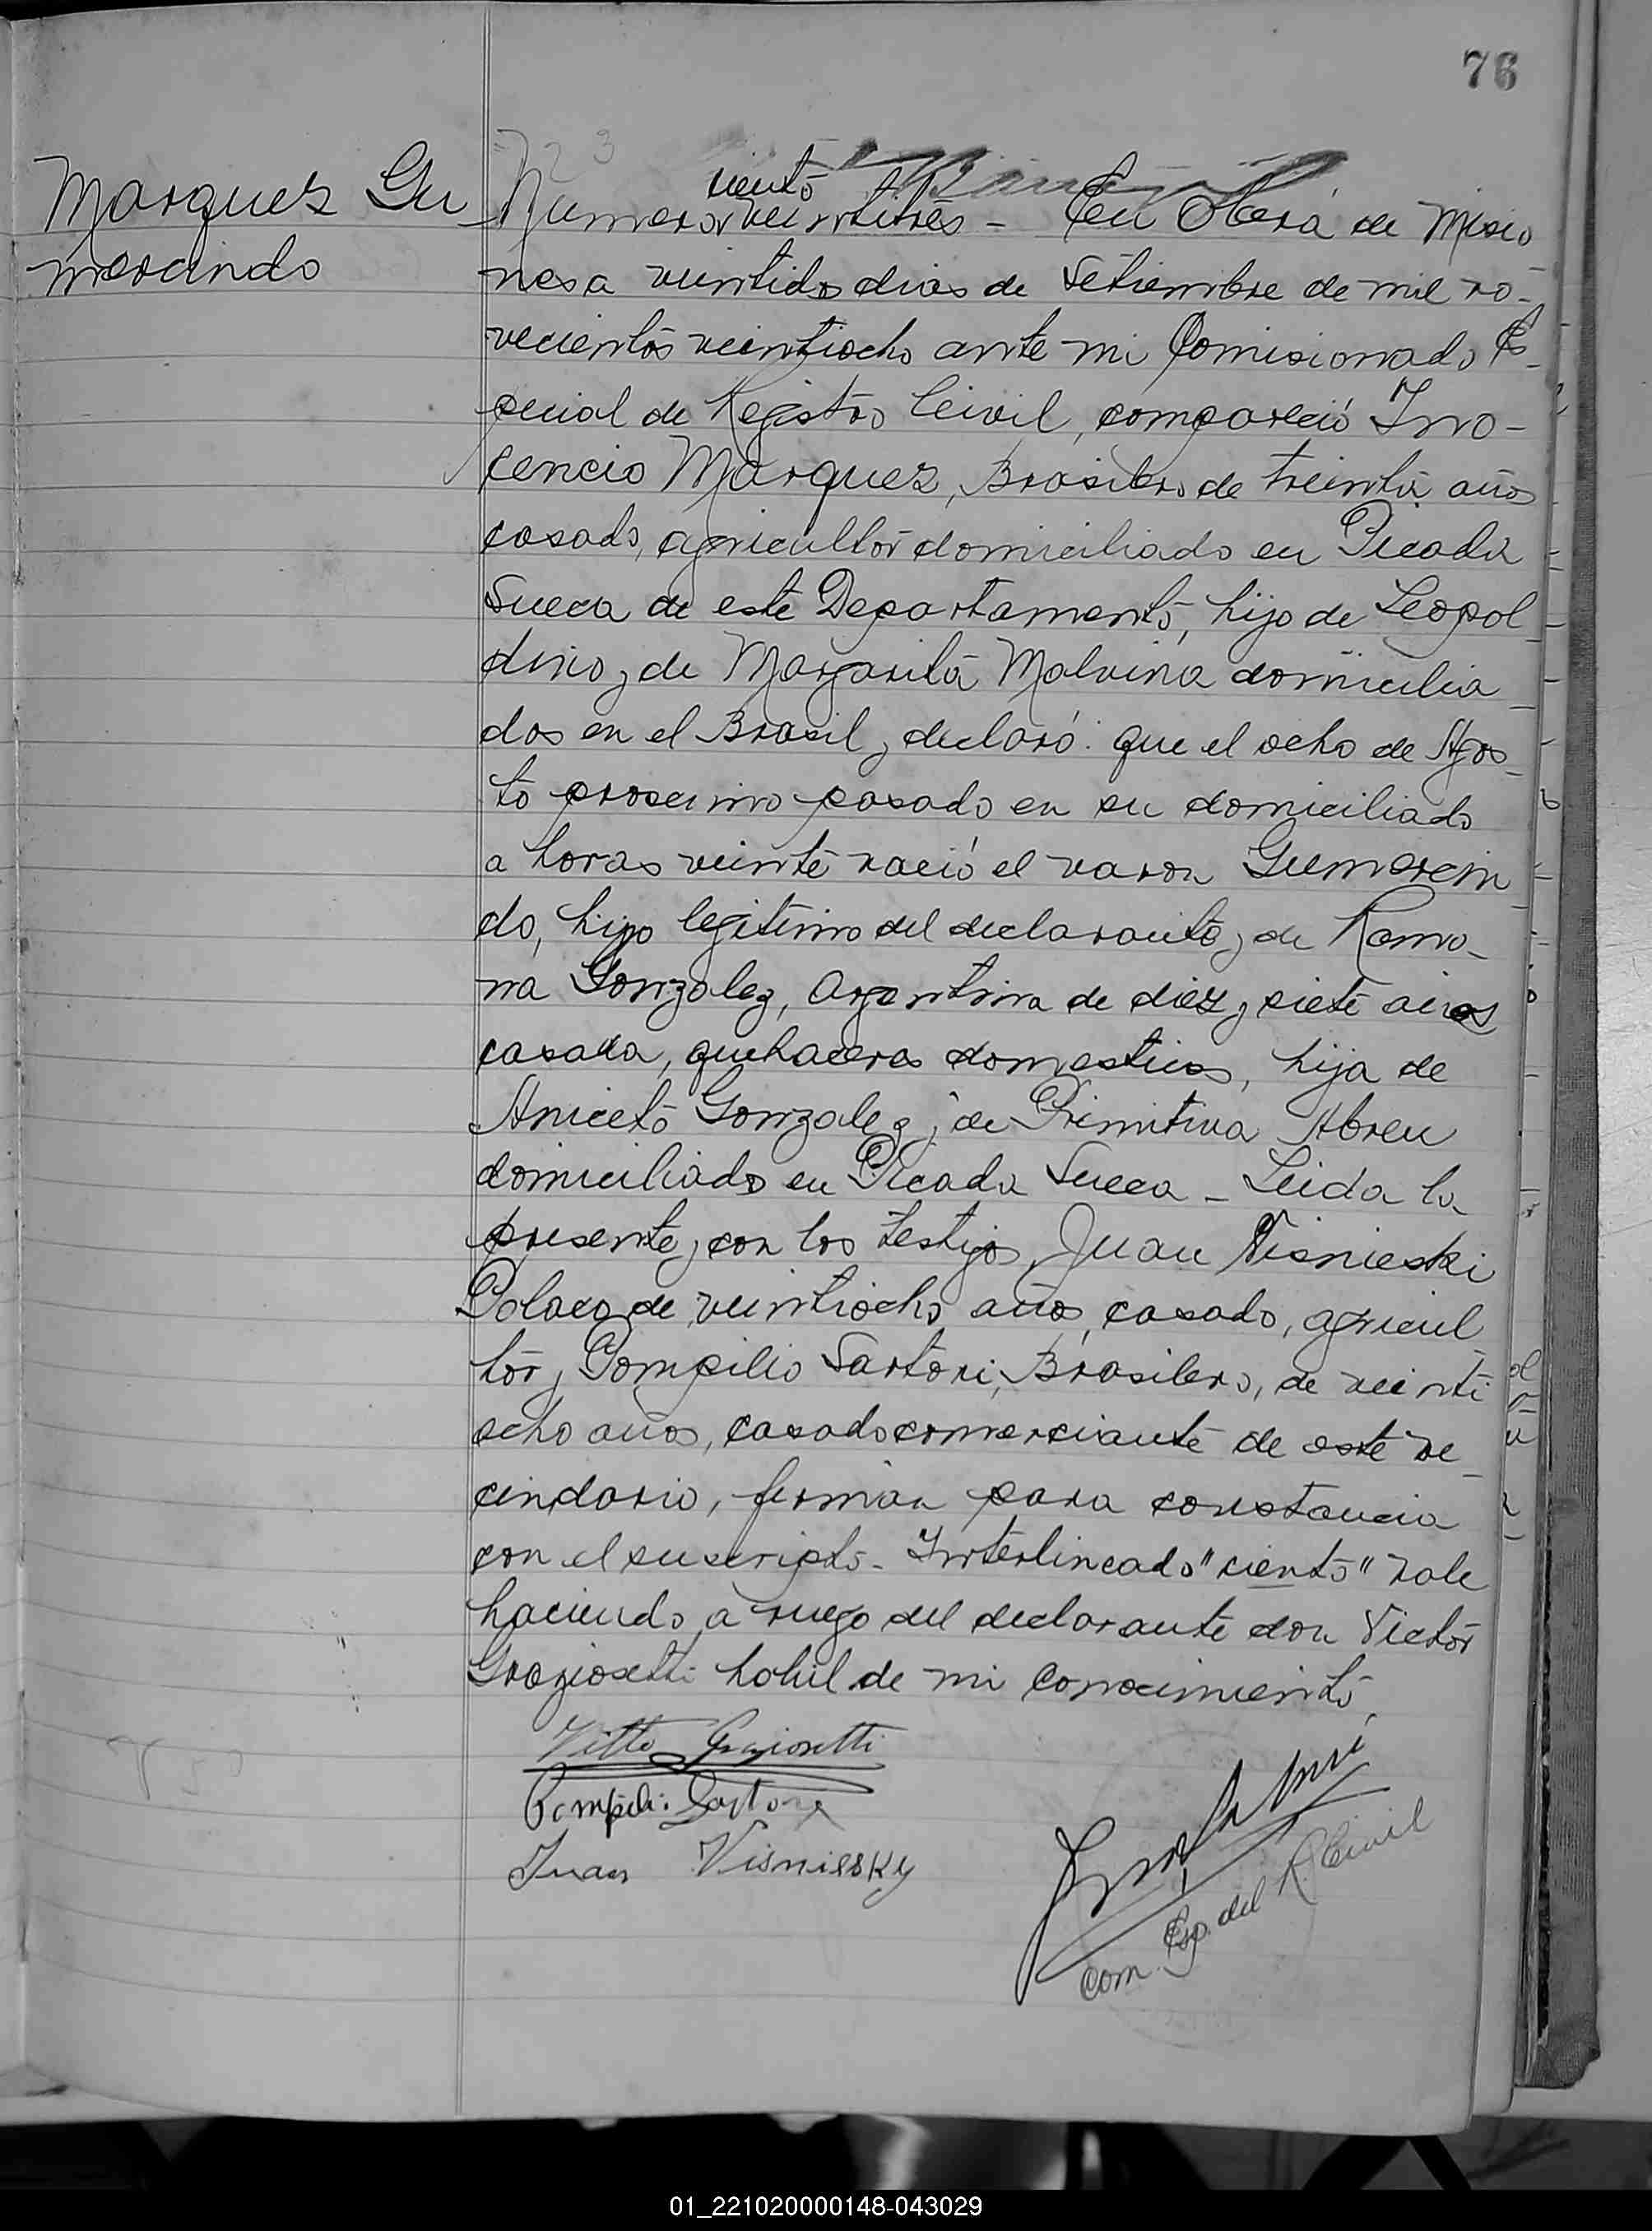 76
Marquez Gu
mercindo
123
ciento
Numero veintitres - En Oberá de Misio
nes a veintidos dias de Setiembre de mil no-
vecientos veintiocho ante mi Comisionado Es-
pecial de Registro Civil, compareció Ino-
cencio Marquez, Brasilero de treinta años
casado, agricultor domiciliado en Picada
Sueca de este Departamento, hijo de Leopol-
dino y de Margarita Malvina domicilia-
dos en el Brasil, declaró: que el ocho de Agos-
to procsimo pasado en su domiciliado
a horas veinte nació el varon Gumercin-
do, hijo legitimo del declarante y de Ramo-
na Gonzalez, Argentina de diez y siete años
casada, quehaceres domesticos, hija de
Aniceto Gonzalez y de Primitiva Abreu
domiciliado en Picada Sueca - Leida la
presente y con los testigos, Juan Visnieski
Polaco de veintiocho años, casado, agricul
tor y Pompilio Sartori, Brasilero, de veinti
ocho años, casado comerciante de este ve-
cindario, firman para constancia
con el suscripto - Interlineado "ciento" vale
haciendo a ruego del declarante don Victor
Graziosetti habil de mi conocimiento
Vitto Graziosetti
Pompilio Sartori
Juan Visniesky
Com. Esp. del R. Civil
01_221020000148-043029